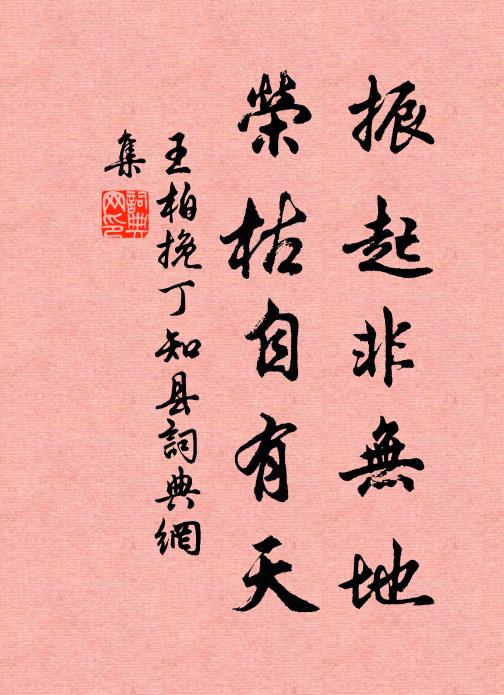 振起非無地
榮枯自有天
王柏挽丁知县詞典網
集
詞典
网印